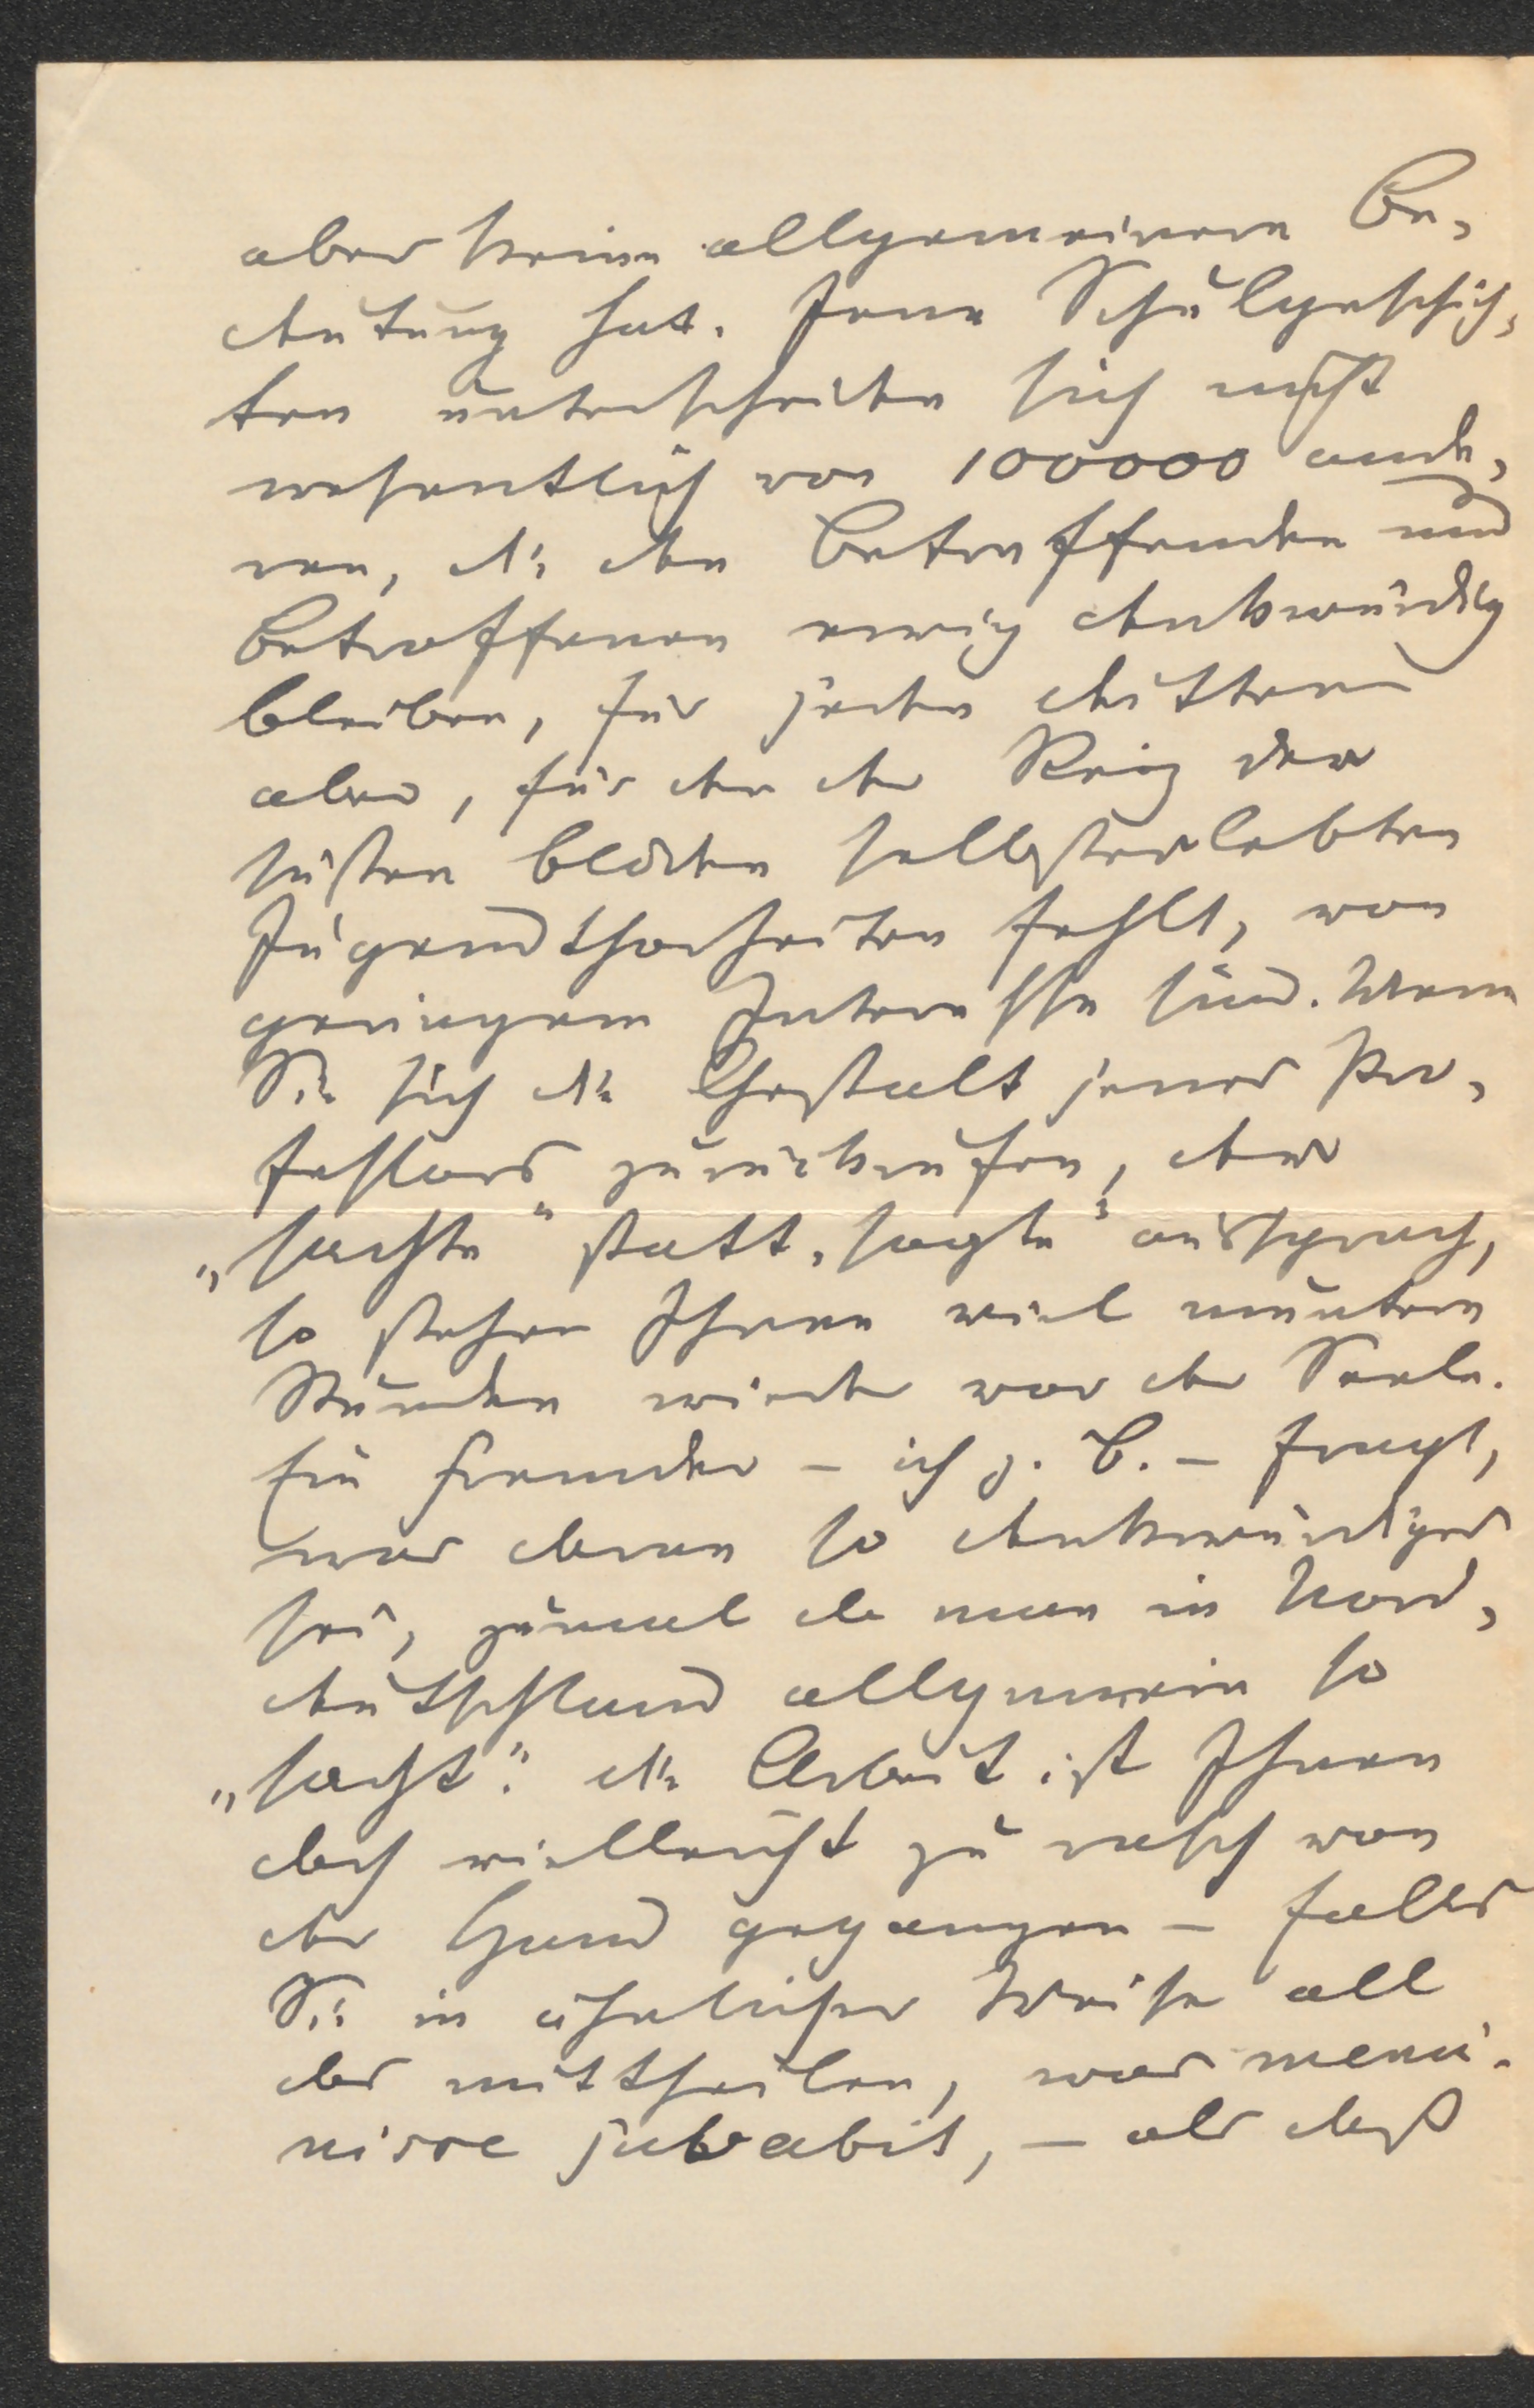 aber keine allgemeinere Be-
deutung hat. Jene Schulgeschich-
ten unterscheiden sich nicht
wesentlich von 100000 ande-
ren, die den Betreffenden und
Betroffenen ewig denkwürdig
bleiben, für jeden dritten
aber, für den der Reiz der
süßen blöden selbsterlebten
Jugendthorheiten fehlt, von
geringem Interesse sind. Wenn
Sie sich die Gestalt jenes Pro-
fessors zurückrufen, der
„sachte" statt „sagte" aussprach,
so stehen Ihnen viel muntere
Stunden wieder vor der Seele.
Ein Fremder – ich z. B. – fragt,
was daran so denkwürdiges
sei, zumal da man in Nord-
deutschland allgemein so
„sacht". Die Arbeit ist Ihnen
doch vielleicht zu rasch von
der Hand gegangen – falls
Sie in ähnlicher Weise all
das mittheilen, was memi-
nisse juvabit, – als daß